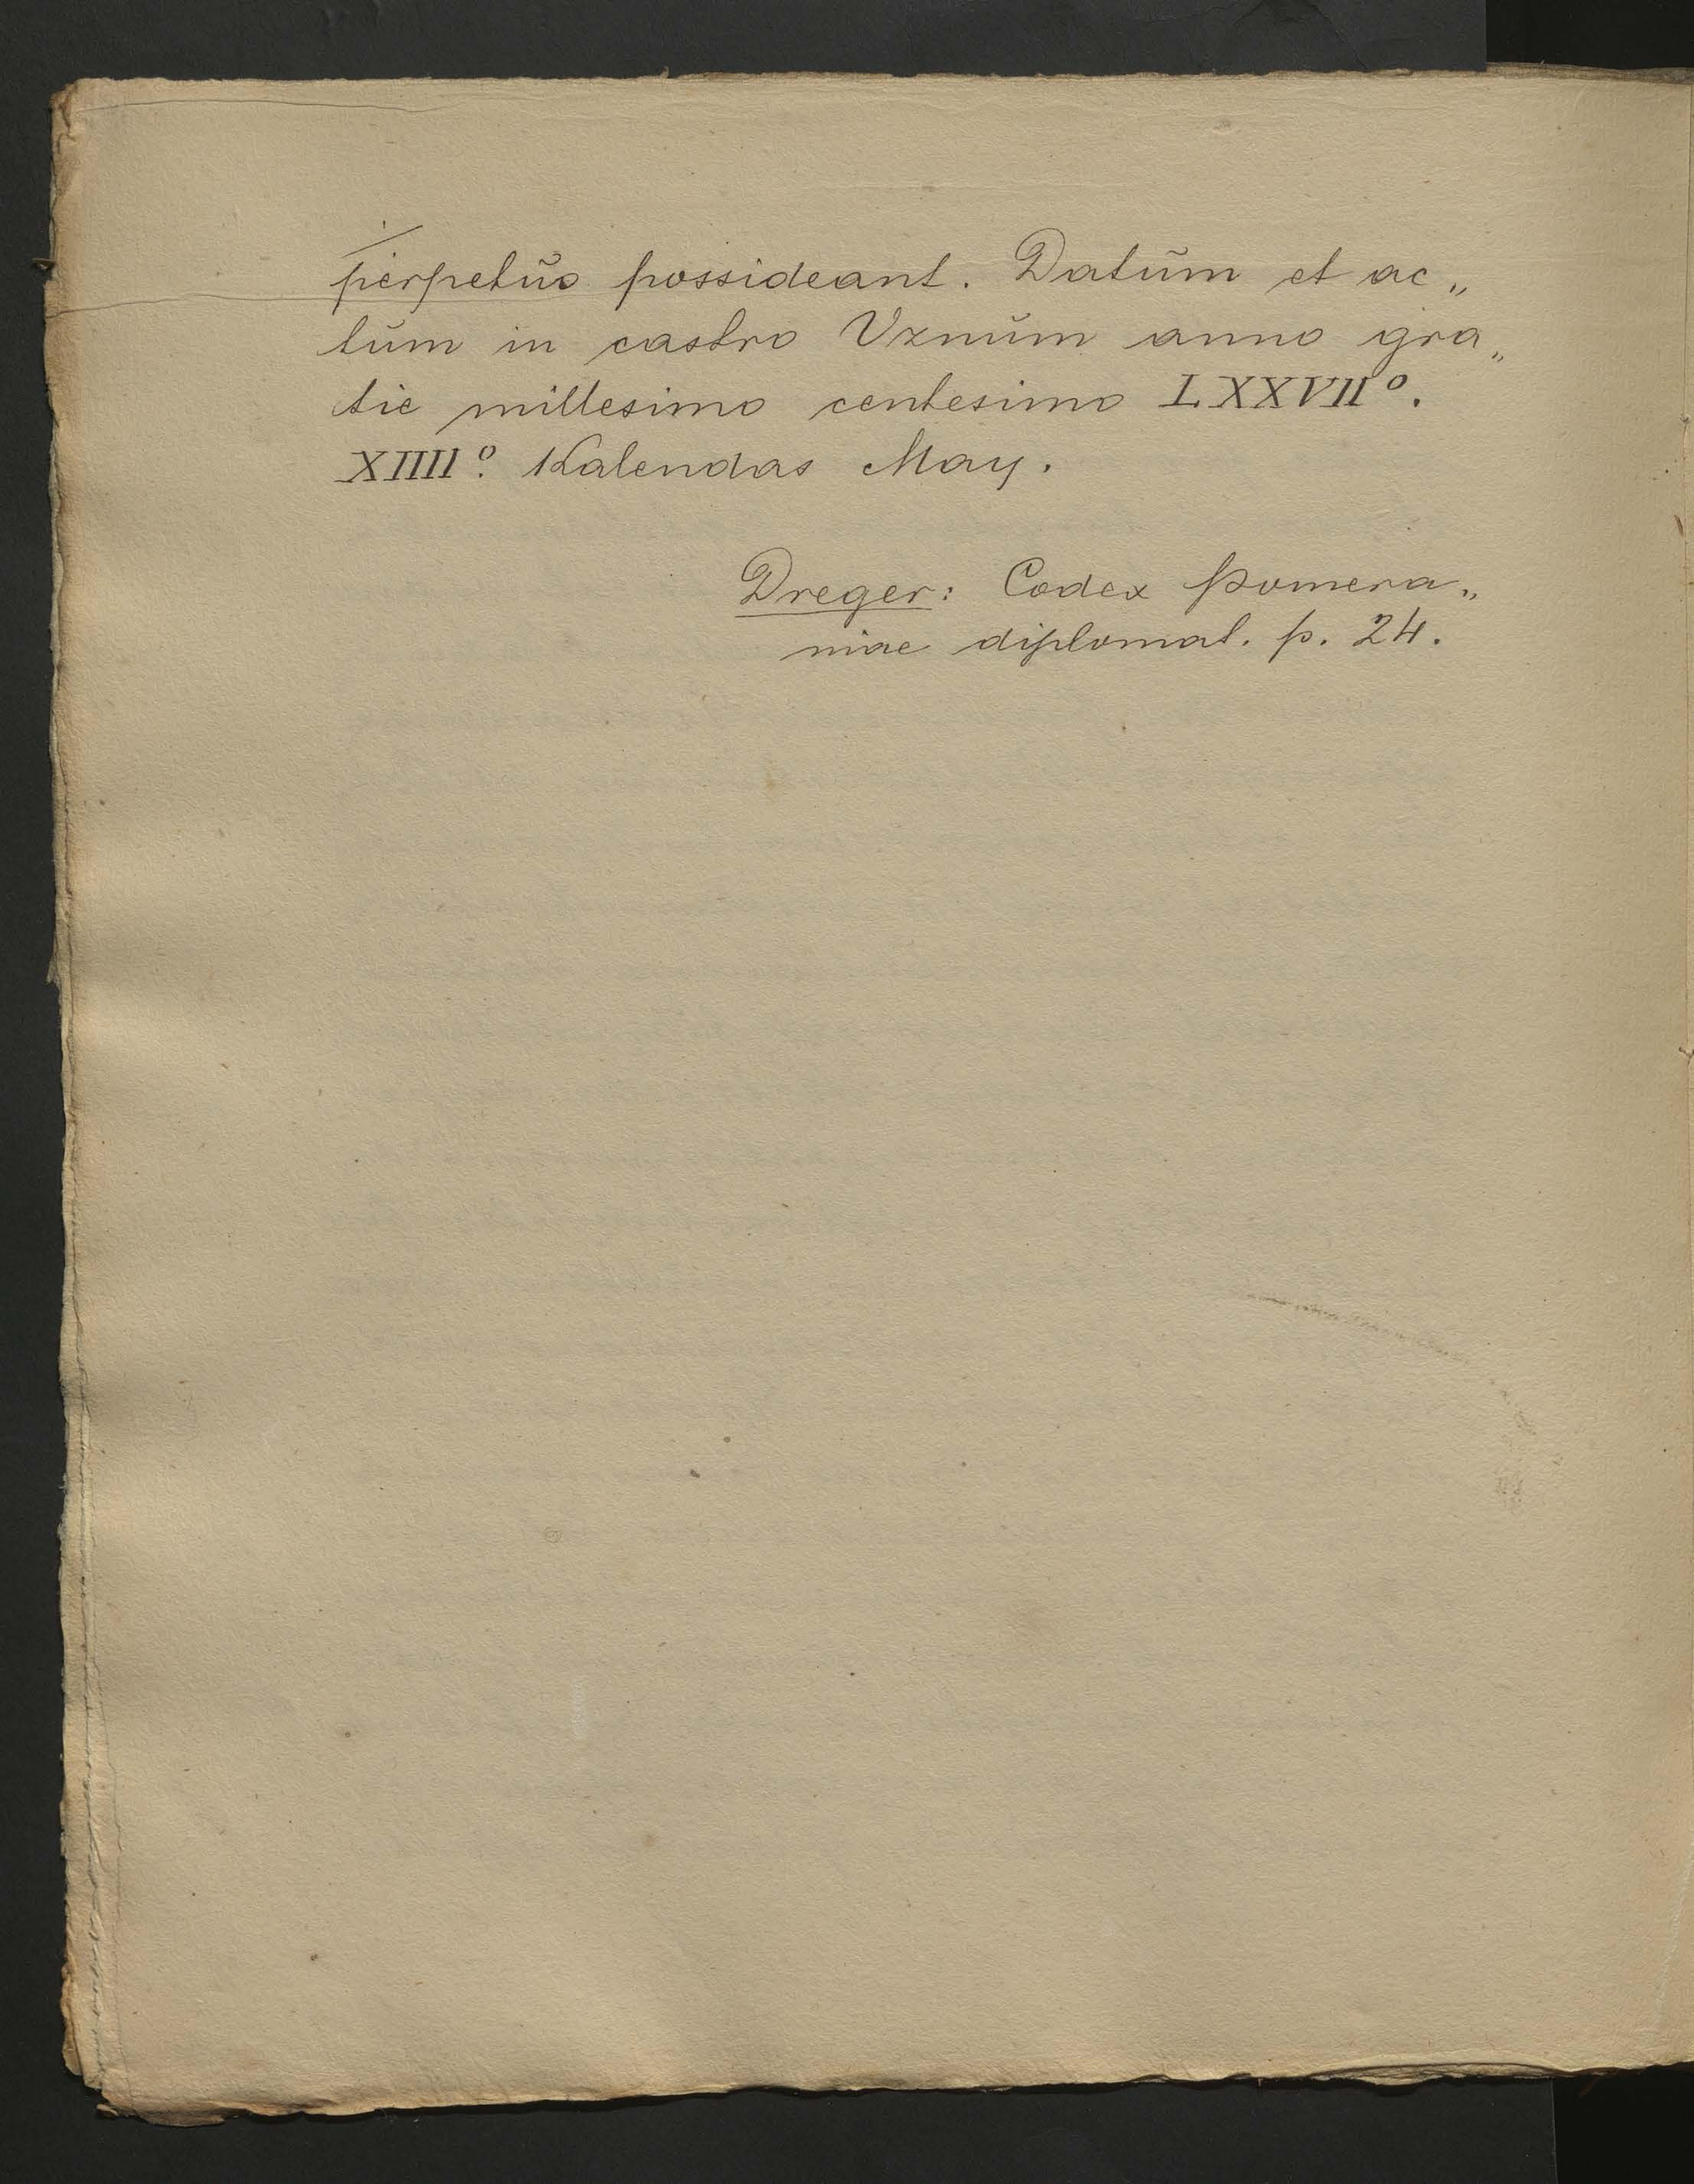 perpetŭo possideant. Datŭm et ac„
tŭm in castro Uznŭm anno gra„
tie millesimo centesimo LXXVIIº.
XIIIIº. Kalendas May.
Dreger: Codex Pomera„
niae diplomat. p. 24.